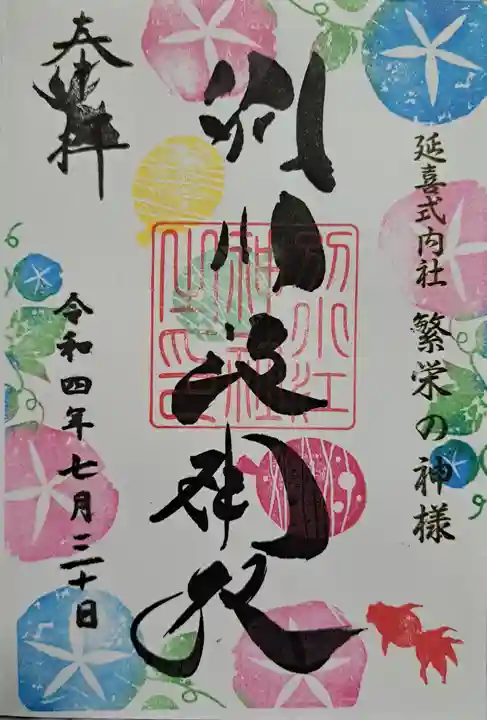 延喜式内社 繁栄の神様
別小江神社
別小江
神社
之印
奉拝
令和四年七月三十日